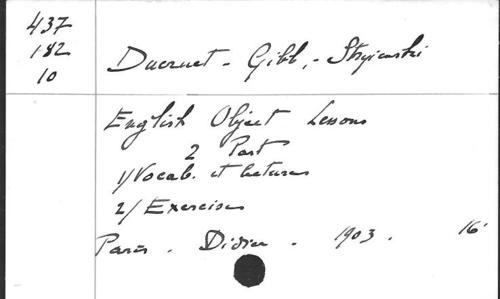 437
182
10
Ducruet - Gibb, - Stryienski
English Object Lessons
2 Part
1/ Vocab. et lectures
2/ Exercises
Paris. Didier. 1903. 16°